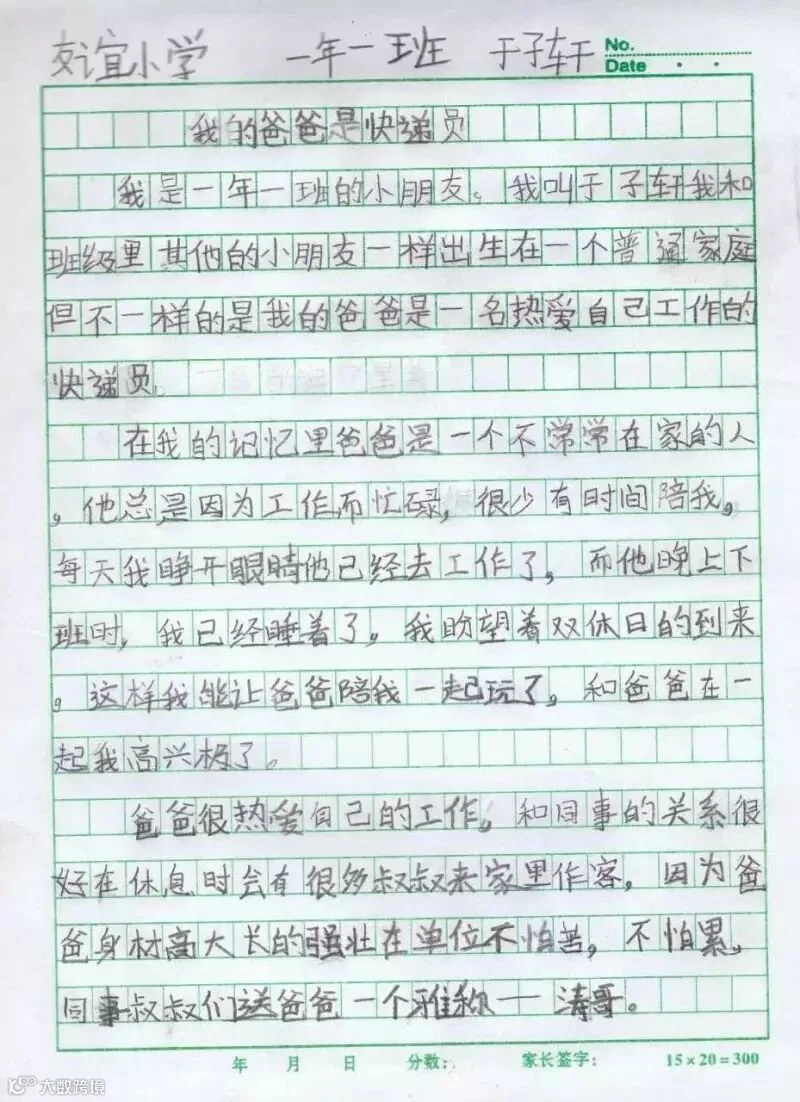 友谊小学 一年一班 于子轩 No.
Date . .
我的爸爸是快递员
我是一年一班的小朋友。我叫于子轩我和
班级里其他的小朋友一样出生在一个普通家庭
但不一样的是我的爸爸是一名热爱自己工作的
快递员。
在我的记忆里爸爸是一个不常常在家的人
，他总是因为工作而忙碌，很少有时间陪我。
每天我睁开眼睛他已经去工作了，而他晚上下
班时，我已经睡着了。我盼望着双休日的到来
。这样我能让爸爸陪我一起玩了。和爸爸在一
起我高兴极了。
爸爸很热爱自己的工作。和同事的关系很
好在休息时会有很多叔叔来家里作客，因为爸
爸身材高大长的强壮在单位不怕苦，不怕累。
同事叔叔们送爸爸一个雅称一涛哥。
年 月 日 分数： 家长签字： 15×20=300
大数跨境